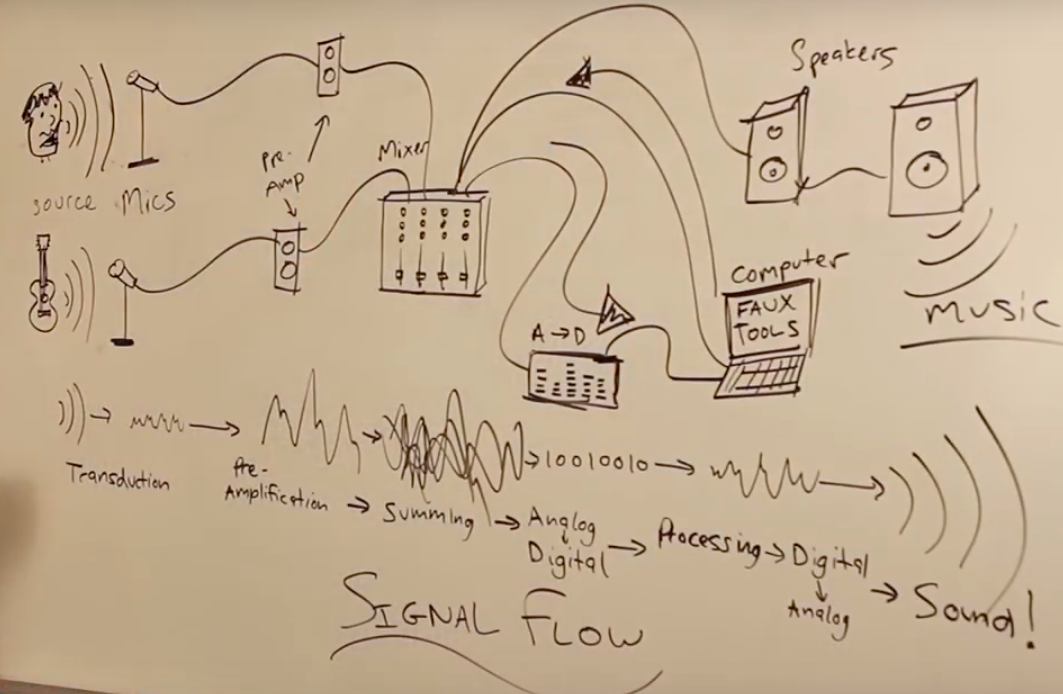 Speakers
Mixer
Pre-
Amp
Source Mics
Computer
FAUX
TOOLS
Music
A→D
→10010010→
Transduction
Pre-
Amplification → Summing → Analog
Digital → Processing → Digital
Analog → Sound!
SIGNAL FLOW